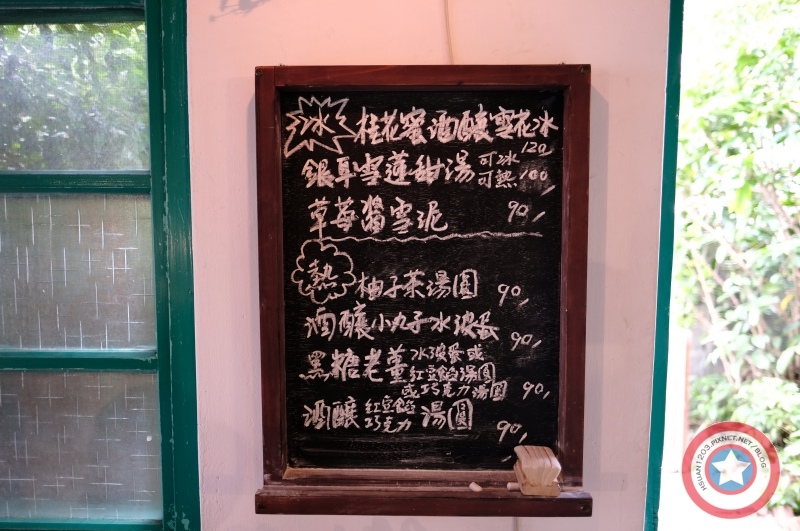 冰 桂花蜜酒釀雪花冰
120
銀耳雪蓮甜湯 可冰 可熱 100,
草莓醬雪泥 90,
熱 柚子茶湯圓 90,
酒釀小丸子水波蛋 90,
黑糖老薑 水波蛋或
紅豆餡湯圓
或巧克力湯圓 90,
酒釀 紅豆餡 巧克力 湯圓 90,
HSUAN1203.PIXNET.NET/BLOG